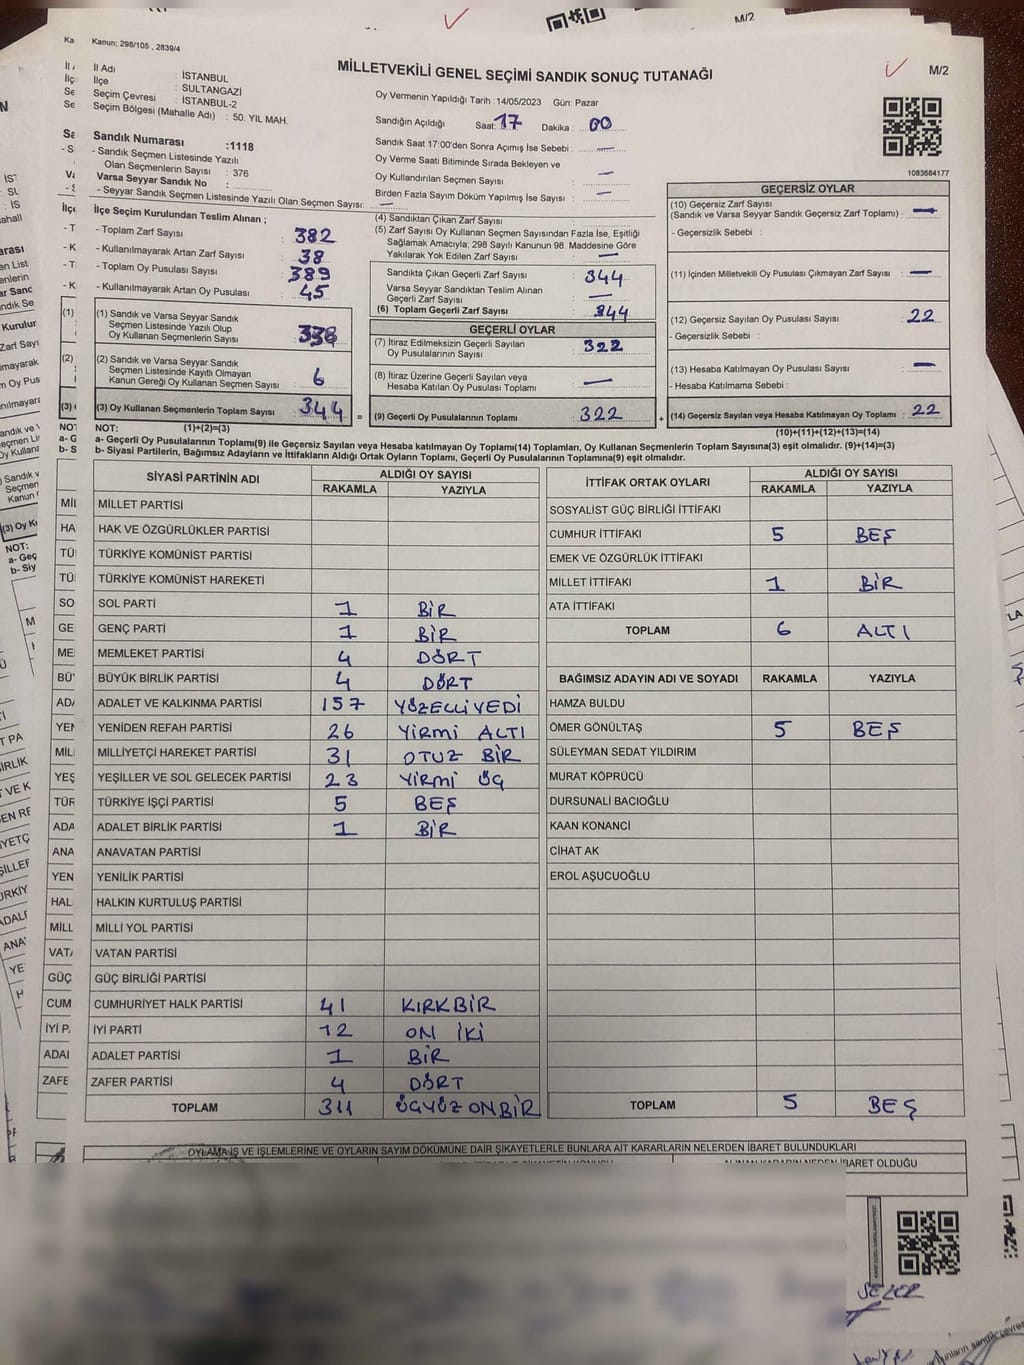 M/2
Kanun; 298/105 , 2839/4
MİLLETVEKİLİ GENEL SEÇİMİ SANDIK SONUÇ TUTANAĞI
M/2
İl Adı : İSTANBUL
İlçe : SULTANGAZİ
Seçim Çevresi : İSTANBUL-2
Seçim Bölgesi (Mahalle Adı) : 50. YIL MAH.
Sandık Numarası :1118
- Sandık Seçmen Listesinde Yazılı
Olan Seçmenlerin Sayısı : 376
Varsa Seyyar Sandık No :
- Seyyar Sandık Seçmen Listesinde Yazılı Olan Seçmen Sayısı: —
Oy Vermenin Yapıldığı Tarih :14/05/2023 Gün: Pazar
Sandığın Açıldığı Saat: 17 Dakika : 00
Sandık Saat 17:00'den Sonra Açımış İse Sebebi : —
Oy Verme Saati Bitiminde Sırada Bekleyen ve
Oy Kullandırılan Seçmen Sayısı —
Birden Fazla Sayım Döküm Yapılmış İse Sayısı : —
1083684177
İlçe Seçim Kurulundan Teslim Alınan ;
- Toplam Zarf Sayısı : 382
- Kullanılmayarak Artan Zarf Sayısı : 38
- Toplam Oy Pusulası Sayısı : 389
- Kullanılmayarak Artan Oy Pusulası : 45
(1) Sandık ve Varsa Seyyar Sandık
Seçmen Listesinde Yazılı Olup
Oy Kullanan Seçmenlerin Sayısı : 338
(2) Sandık ve Varsa Seyyar Sandık
Seçmen Listesinde Kayıtlı Olmayan
Kanun Gereği Oy Kullanan Seçmen Sayısı : 6
(3) Oy Kullanan Seçmenlerin Toplam Sayısı : 344
(4) Sandıktan Çıkan Zarf Sayısı :
(5) Zarf Sayısı Oy Kullanan Seçmen Sayısından Fazla İse, Eşitliği
Sağlamak Amacıyla; 298 Sayılı Kanunun 98. Maddesine Göre
Yakılarak Yok Edilen Zarf Sayısı : —
Sandıkta Çıkan Geçerli Zarf Sayısı : 344
Varsa Seyyar Sandıktan Teslim Alınan
Geçerli Zarf Sayısı : —
(6) Toplam Geçerli Zarf Sayısı : 344
GEÇERLİ OYLAR
(7) İtiraz Edilmeksizin Geçerli Sayılan
Oy Pusulalarının Sayısı : 322
(8) İtiraz Üzerine Geçerli Sayılan veya
Hesaba Katılan Oy Pusulası Toplamı : —
= (9) Geçerli Oy Pusulalarının Toplamı : 322
GEÇERSİZ OYLAR
(10) Geçersiz Zarf Sayısı
(Sandık ve Varsa Seyyar Sandık Geçersiz Zarf Toplamı) : —
- Geçersizlik Sebebi :
(11) İçinden Milletvekili Oy Pusulası Çıkmayan Zarf Sayısı : —
(12) Geçersiz Sayılan Oy Pusulası Sayısı : 22
- Geçersizlik Sebebi :
(13) Hesaba Katılmayan Oy Pusulası Sayısı : —
- Hesaba Katılmama Sebebi :
+ (14) Geçersiz Sayılan veya Hesaba Katılmayan Oy Toplamı : 22
NOT: (1)+(2)=(3) (10)+(11)+(12)+(13)=(14)
a- Geçerli Oy Pusulalarının Toplamı(9) ile Geçersiz Sayılan veya Hesaba katılmayan Oy Toplamı(14) Toplamları, Oy Kullanan Seçmenlerin Toplam Sayısına(3) eşit olmalıdır. (9)+(14)=(3)
b- Siyasi Partilerin, Bağımsız Adayların ve İttifakların Aldığı Ortak Oyların Toplamı, Geçerli Oy Pusulalarının Toplamına(9) eşit olmalıdır.
SİYASİ PARTİNİN ADI ALDIĞI OY SAYISI
RAKAMLA YAZIYLA
MİLLET PARTİSİ
HAK VE ÖZGÜRLÜKLER PARTİSİ
TÜRKİYE KOMÜNİST PARTİSİ
TÜRKİYE KOMÜNİST HAREKETİ
SOL PARTİ 1 BİR
GENÇ PARTİ 1 BİR
MEMLEKET PARTİSİ 4 DÖRT
BÜYÜK BİRLİK PARTİSİ 4 DÖRT
ADALET VE KALKINMA PARTİSİ 157 YÜZELLİYEDİ
YENİDEN REFAH PARTİSİ 26 YİRMİ ALTI
MİLLİYETÇİ HAREKET PARTİSİ 31 OTUZ BİR
YEŞİLLER VE SOL GELECEK PARTİSİ 23 YİRMİ ÜÇ
TÜRKİYE İŞÇİ PARTİSİ 5 BEŞ
ADALET BİRLİK PARTİSİ 1 BİR
ANAVATAN PARTİSİ
YENİLİK PARTİSİ
HALKIN KURTULUŞ PARTİSİ
MİLLİ YOL PARTİSİ
VATAN PARTİSİ
GÜÇ BİRLİĞİ PARTİSİ
CUMHURİYET HALK PARTİSİ 41 KIRKBİR
İYİ PARTİ 12 ON İKİ
ADALET PARTİSİ 1 BİR
ZAFER PARTİSİ 4 DÖRT
TOPLAM 311 ÜÇYÜZ ONBİR
İTTİFAK ORTAK OYLARI ALDIĞI OY SAYISI
RAKAMLA YAZIYLA
SOSYALİST GÜÇ BİRLİĞİ İTTİFAKI
CUMHUR İTTİFAKI 5 BEŞ
EMEK VE ÖZGÜRLÜK İTTİFAKI
MİLLET İTTİFAKI 1 BİR
ATA İTTİFAKI
TOPLAM 6 ALTI
BAĞIMSIZ ADAYIN ADI VE SOYADI RAKAMLA YAZIYLA
HAMZA BULDU
ÖMER GÖNÜLTAŞ 5 BEŞ
SÜLEYMAN SEDAT YILDIRIM
MURAT KÖPRÜCÜ
DURSUNALİ BACIOĞLU
KAAN KONANCİ
CİHAT AK
EROL AŞUCUOĞLU
TOPLAM 5 BEŞ
OYLAMA İŞ VE İŞLEMLERİNE VE OYLARIN SAYIM DÖKÜMÜNE DAİR ŞİKAYETLERLE BUNLARA AİT KARARLARIN NELERDEN İBARET BULUNDUKLARI